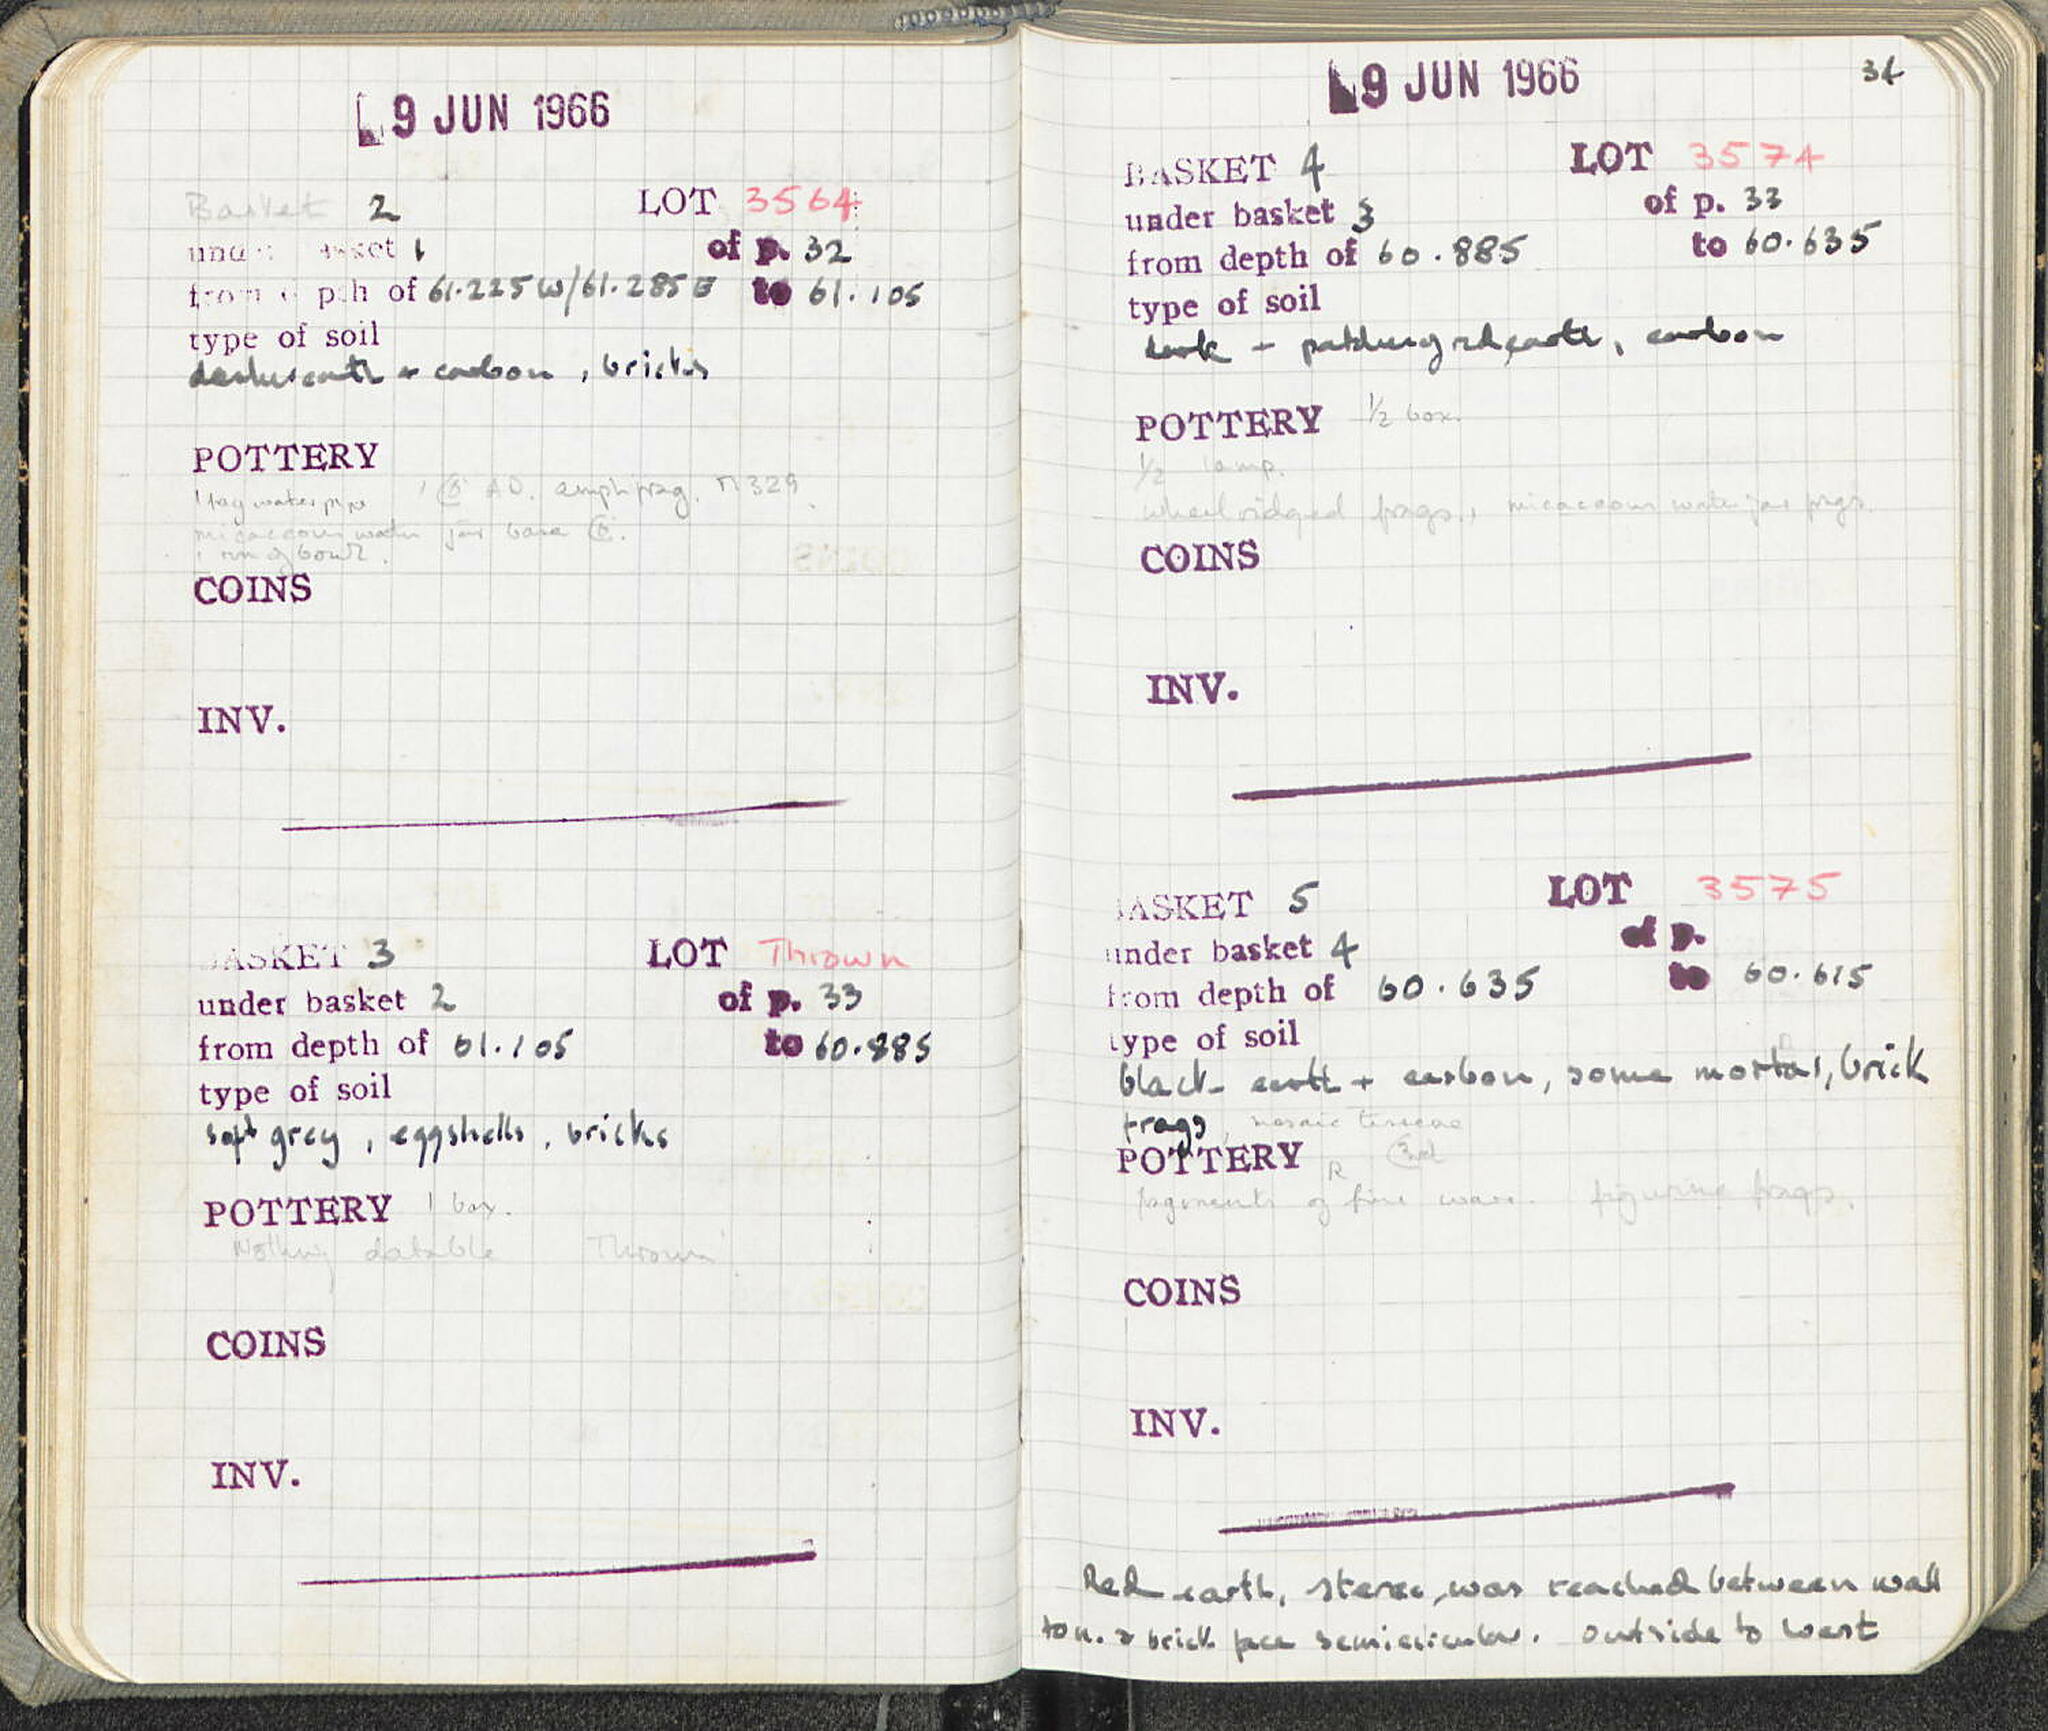 9 JUN 1966
Basket 2 LOT 3564
under basket 1 of p. 32
from depth of 61.225W/61.285E to 61.105
type of soil
earth + carbon, bricks
POTTERY
1 frag water pipe 1 AD. amph frag. 329
micaceous water jar base
1 rim of bowl.
COINS
INV.
BASKET 3 LOT Thrown
under basket 2 of p. 33
from depth of 61.105 to 60.885
type of soil
soft grey, eggshells, bricks
POTTERY 1 box.
Nothing datable Thrown
COINS
INV.
9 JUN 1966 34
BASKET 4 LOT 3574
under basket 3 of p. 33
from depth of 60.885 to 60.635
type of soil
dark + patches of red earth, carbon
POTTERY 1/2 box.
1/2 lamp.
wheel ridged frags., micaceous water jar frags.
COINS
INV.
BASKET 5 LOT 3575
under basket 4 of p.
from depth of 60.635 to 60.615
type of soil
black earth + carbon, some mortar, brick
frags, mosaic tesserae
POTTERY
R
fragments of fine ware. figurine frags.
COINS
INV.
Red earth, stereo, was reached between wall
to n. & brick semicircular. Outside to west